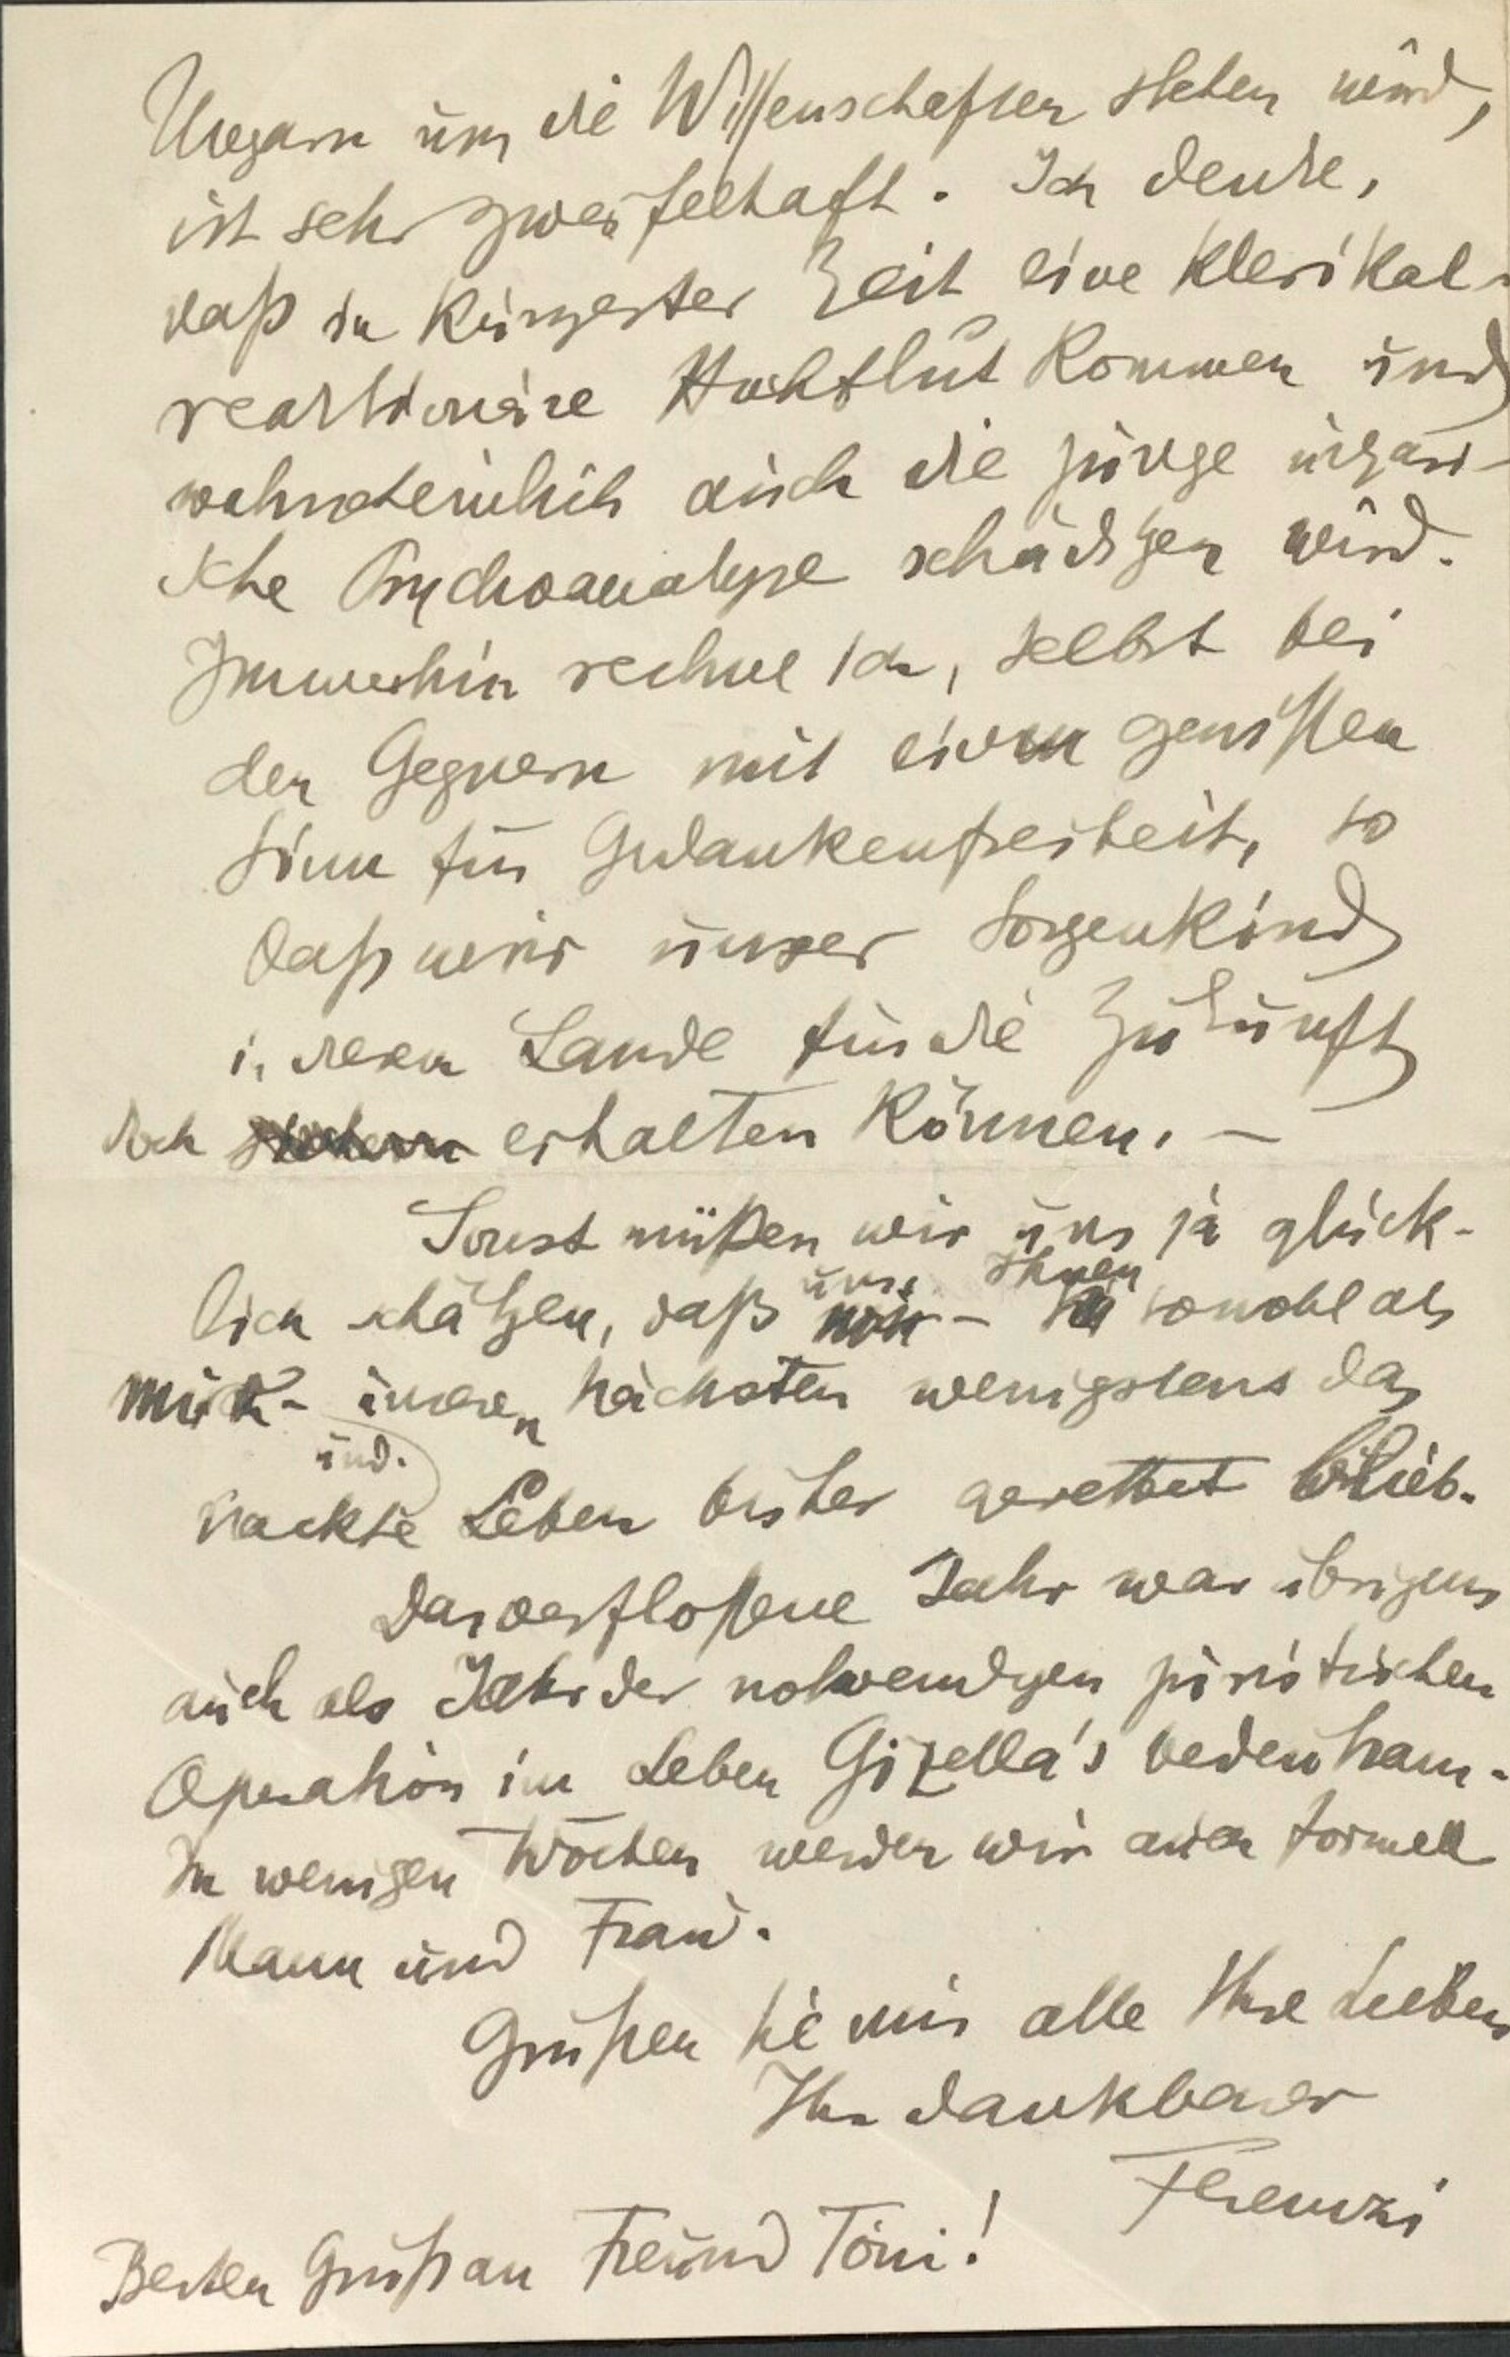 Ungarn um die Wissenschaften stehen wird,
ist sehr zweifelhaft. Ich denke,
daß in kürzester Zeit eine klerikal-
reaktionäre Hochflut kommen und
wahrscheinlich auch die junge ungari-
sche Psychoanalyse schädigen wird.
Immerhin rechne ich, selbst bei
den Gegnern mit einem gewissen
Sinn für Gedankenfreiheit, so
daß wir unser Sorgenkind
in diesem Lande für die Zukunft
doch erhalten können. —
Sonst müßen wir uns ja glück-
lich schätzen, daß uns – Ihnen sowohl als
mir – unseren nächsten wenigstens das
und.
nackte Leben bisher gerettet blieb.
Das verfloßene Jahr war übrigens
auch als Jahr der notwendigen juristischen
Operation im Leben Gizella's bedeutsam.
In wenigen Wochen werden wir auch formell
Mann und Frau.
Grüßen Sie mir alle Ihre Lieben
Ihr dankbarer
Ferenczi
Besten Gruß an Freund Toni!